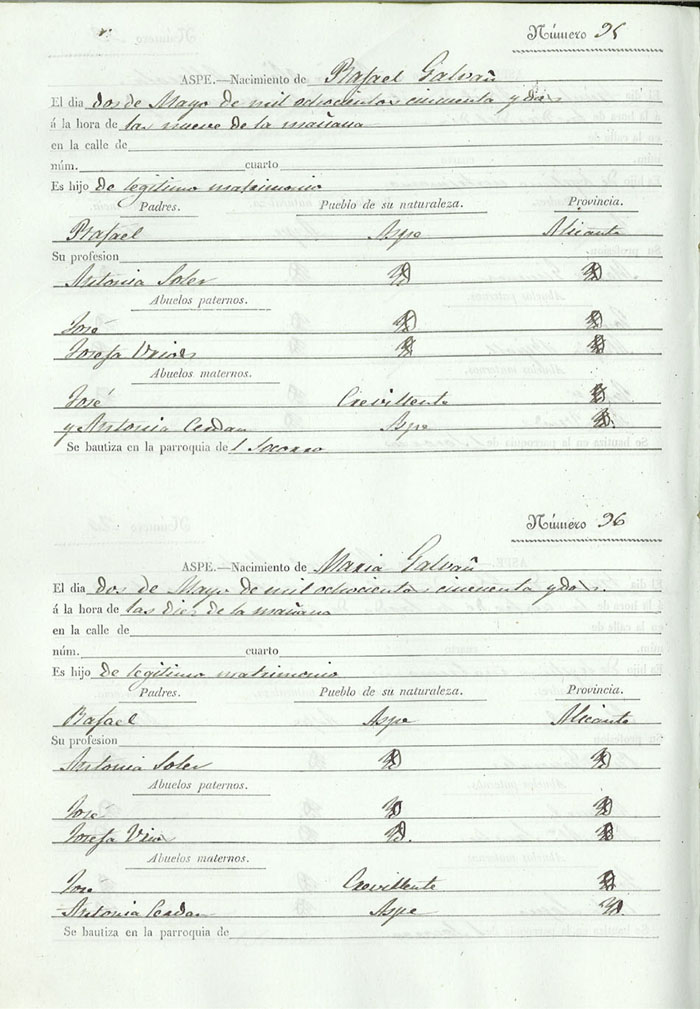 Número 95
ASPE.—Nacimiento de Rafael Galvañ
El dia dos de Mayo de mil ochocientos cincuenta y dos
á la hora de las nueve de la mañana
en la calle de
núm. cuarto
Es hijo de legitimo matrimonio
Padres. Pueblo de su naturaleza. Provincia.
Rafael Aspe Alicante
Su profesion
Antonia Soler
Abuelos paternos.
José
Josefa
Abuelos maternos.
José Crevillente
y Antonia Cerdan Aspe
Se bautiza en la parroquia de l Socorro
Número 96
ASPE.—Nacimiento de Maria Galvañ
El dia dos de Mayo de mil ochocientos cincuenta y dos.
á la hora de las diez de la mañana
en la calle de
núm. cuarto
Es hijo de legitimo matrimonio
Padres. Pueblo de su naturaleza. Provincia.
Rafael Aspe Alicante
Su profesion
Antonia Soler
Abuelos paternos.
José
Josefa
Abuelos maternos.
José Crevillente
Antonia Cerdan Aspe
Se bautiza en la parroquia de